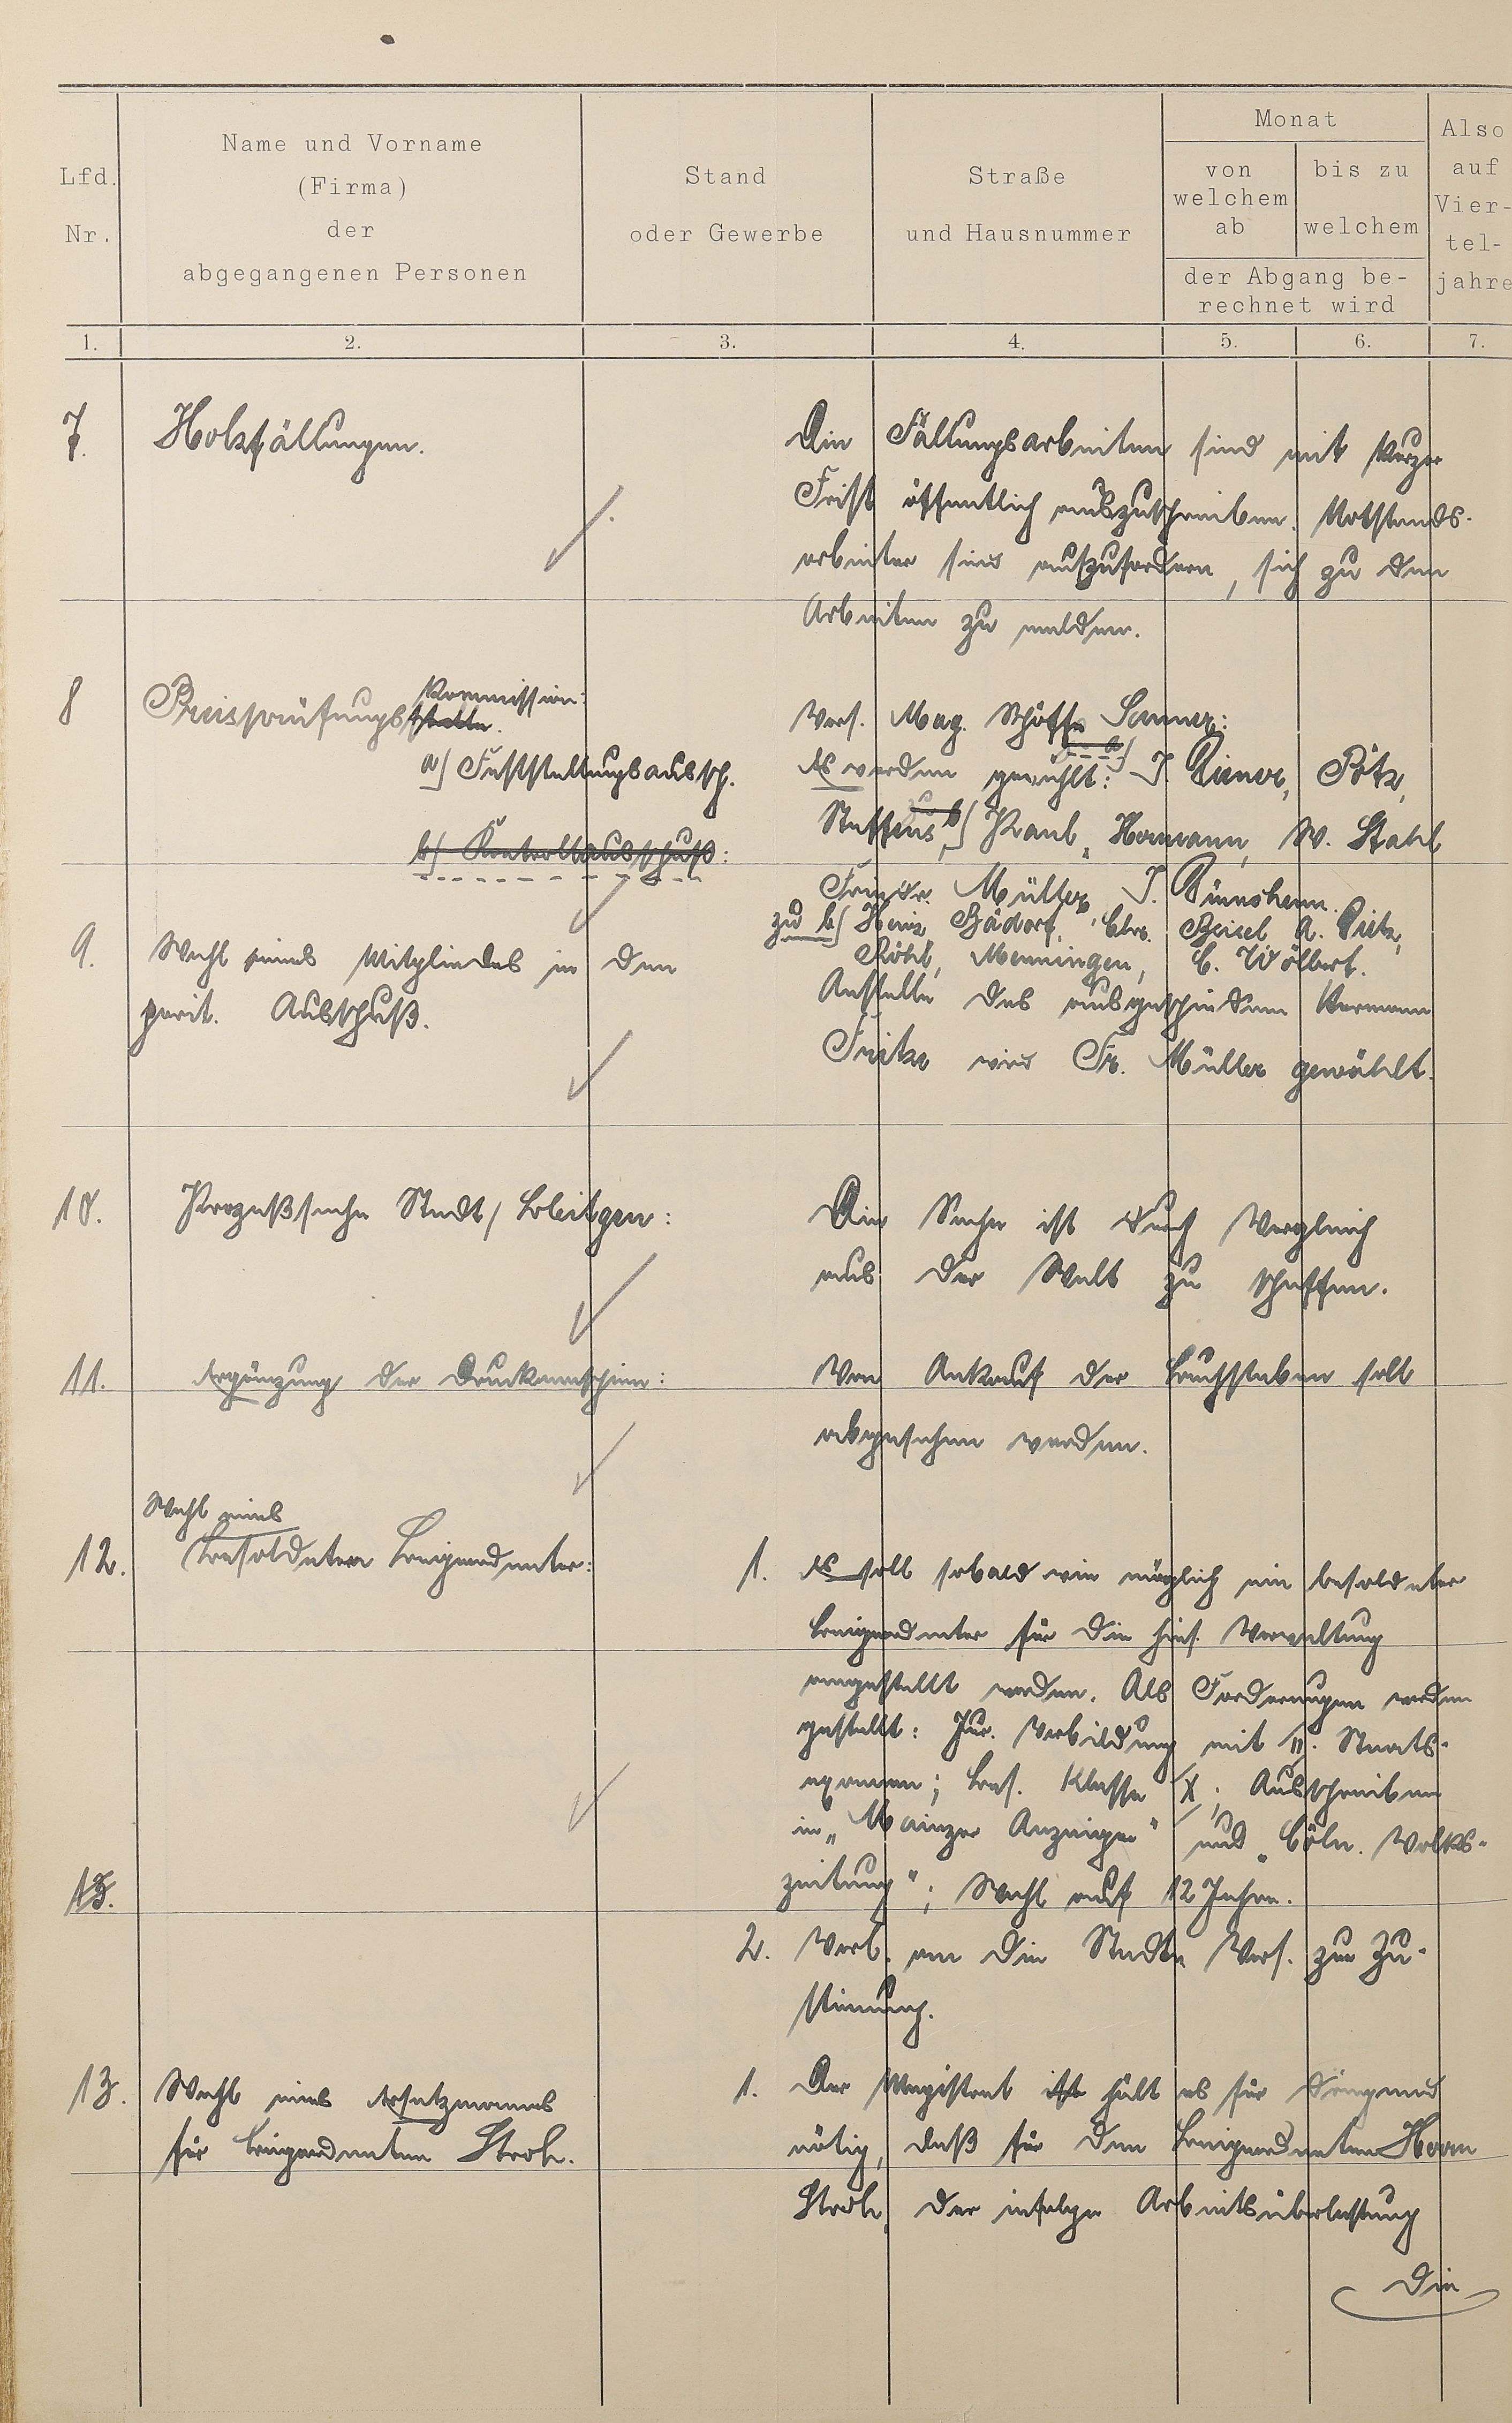 Lfd. Nr.
Name und Vorname (Firma) der abgegangenen Personen
Stand oder Gewerbe
Straße und Hausnummer
Monat
von welchem ab
bis zu welchem
der Abgang be-
rechnet wird
Also auf Vier-
tel-
jahre
1. 2. 3. 4. 5. 6. 7.
7. Holzfällungen.
Die Fällungsarbeiten sind mit kurzer
Frist öffentlich auszuschreiben. Notstands-
arbeiter sind aufzufordern, sich zu den
Arbeiten zu melden.
8 Preisprüfungsstelle.
Kommission:
a) Feststellungsaussch.
b) Kontrollausschuß:
Vors. Mag. Schöffe Sommer:
Es werden gewählt: a) J. Diener, Pötz,
Steffens, b) Kaul, Hermann, W. Stahl
Frindr. Müller, J. Dünschem.
zu b) Heinr. Bädorf, Chr. Beisel, A. Dietz,
Röhl, Menningen, C. Wölbert.
9. Wahl eines Mitgliedes in den
parit. Ausschuß.
Anstelle des ausgeschiedenen Hermann
Fritze wird Fr. Müller gewählt.
10. Prozeßsache Stadt / Bleitgen:
Die Sache ist durch Vergleich
aus der Welt zu schaffen.
11. Ergänzung der Druckmaschine:
Von Ankauf der Buchstaben soll
abgesehen werden.
12. Wahl eines
besoldeten Beigeordneter:
1. Es soll sobald wie möglich ein besoldeter
Beigeordneter für die hies. Verwaltung
angestellt werden. Als Forderungen werden
gestellt: Jur. Vorbildung mit II. Staats-
examen; Bes. Klasse X; Ausschreiben
in "Mainzer Anzeiger" und "Cöln. Volks-
zeitung"; Wahl auf 12 Jahre.
13.
2. Vorl. an die Stadtv. Vers. zur Zu-
stimmung.
13. Wahl eines Ersatzmannes
für Beigeordneten Stroh.
1. Der Magistrat ist hält es für dringend
nötig, daß für den Beigeordneten Herrn
Stroh, der infolge Arbeitsüberlastung
die